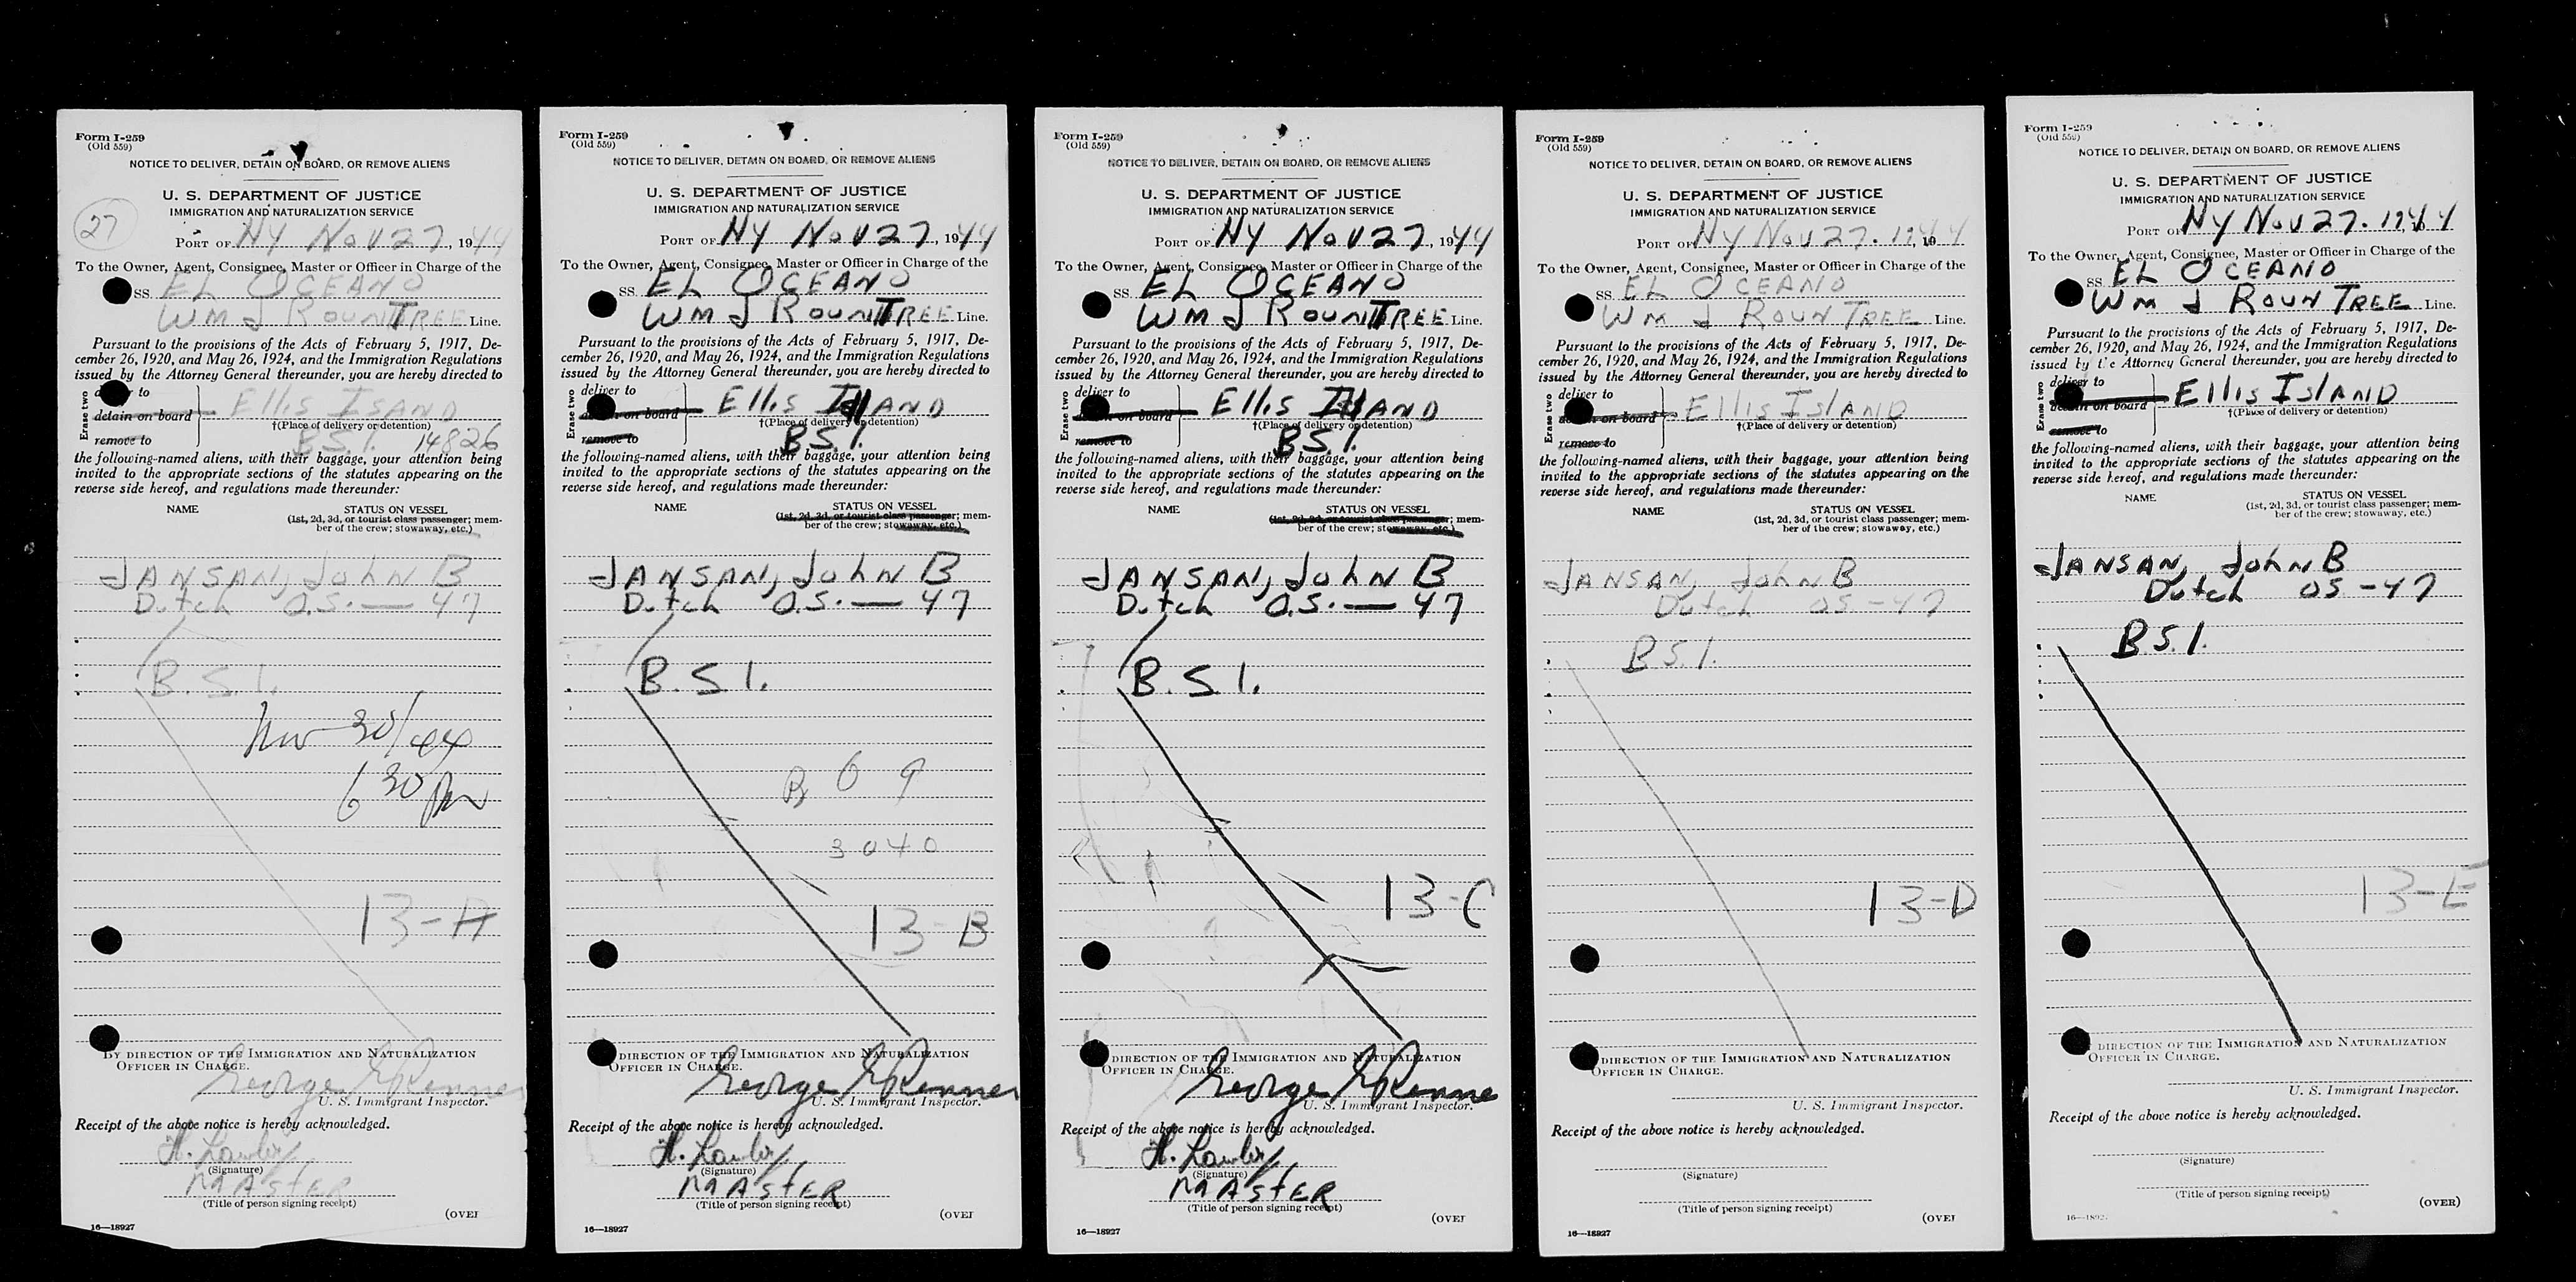 Form I-259
(Old 559)
NOTICE TO DELIVER, DETAIN ON BOARD, OR REMOVE ALIENS
U. S. DEPARTMENT OF JUSTICE
IMMIGRATION AND NATURALIZATION SERVICE
27
PORT OF NY NOV 27, 1944
To the Owner, Agent, Consignee, Master or Officer in Charge of the
SS. EL OCEANO
WM J ROUNTREE Line.
Pursuant to the provisions of the Acts of February 5, 1917, De-
cember 26, 1920, and May 26, 1924, and the Immigration Regulations
issued by the Attorney General thereunder, you are hereby directed to
Erase two
to
detain on board
Ellis ISAND
†(Place of delivery or detention)
remove to
B.S.I. 14826
the following-named aliens, with their baggage, your attention being
invited to the appropriate sections of the statutes appearing on the
reverse side hereof, and regulations made thereunder:
NAME STATUS ON VESSEL
(1st, 2d, 3d, or tourist class passenger; mem-
ber of the crew; stowaway, etc.)
JANSAN, JOHN B
Dutch O.S. — 47
B.S.I.
Nov 30/44
6 30 Pm
13-A
BY DIRECTION OF THE IMMIGRATION AND NATURALIZATION
OFFICER IN CHARGE.
George
U. S. Immigrant Inspector.
Receipt of the above notice is hereby acknowledged.
H.
(Signature)
MASTER
(Title of person signing receipt)
16—18927
(OVER
Form I-259
(Old 559)
NOTICE TO DELIVER, DETAIN ON BOARD, OR REMOVE ALIENS
U. S. DEPARTMENT OF JUSTICE
IMMIGRATION AND NATURALIZATION SERVICE
PORT OF NY NOV 27, 1944
To the Owner, Agent, Consignee, Master or Officer in Charge of the
SS. EL OCEANO
WM J ROUNTREE Line.
Pursuant to the provisions of the Acts of February 5, 1917, De-
cember 26, 1920, and May 26, 1924, and the Immigration Regulations
issued by the Attorney General thereunder, you are hereby directed to
Erase two
deliver to
on board
Ellis IslAND
†(Place of delivery or detention)
remove to
B.S.I.
the following-named aliens, with their baggage, your attention being
invited to the appropriate sections of the statutes appearing on the
reverse side hereof, and regulations made thereunder:
NAME STATUS ON VESSEL
(1st, 2d, 3d, or tourist class passenger; mem-
ber of the crew; stowaway, etc.)
JANSAN, JOHN B
Dutch O.S. — 47
B.S.I.
R 6 9
3040
13-B
DIRECTION OF THE IMMIGRATION AND NATURALIZATION
OFFICER IN CHARGE.
George
U. S. Immigrant Inspector.
Receipt of the above notice is hereby acknowledged.
H.
(Signature)
MASTER
(Title of person signing receipt)
16—18927
(OVER
Form I-259
(Old 559)
NOTICE TO DELIVER, DETAIN ON BOARD, OR REMOVE ALIENS
U. S. DEPARTMENT OF JUSTICE
IMMIGRATION AND NATURALIZATION SERVICE
PORT OF NY NOV 27, 1944
To the Owner, Agent, Consignee, Master or Officer in Charge of the
SS. EL OCEANO
WM J ROUNTREE Line.
Pursuant to the provisions of the Acts of February 5, 1917, De-
cember 26, 1920, and May 26, 1924, and the Immigration Regulations
issued by the Attorney General thereunder, you are hereby directed to
Erase two
deliver to
on board
Ellis IslAND
†(Place of delivery or detention)
remove to
B.S.I.
the following-named aliens, with their baggage, your attention being
invited to the appropriate sections of the statutes appearing on the
reverse side hereof, and regulations made thereunder:
NAME STATUS ON VESSEL
(1st, 2d, 3d, or tourist class passenger; mem-
ber of the crew; stowaway, etc.)
JANSAN, JOHN B
Dutch O.S. — 47
B.S.I.
13-C
DIRECTION OF THE IMMIGRATION AND NATURALIZATION
OFFICER IN CHARGE.
George
U. S. Immigrant Inspector.
Receipt of the above notice is hereby acknowledged.
H.
(Signature)
MASTER
(Title of person signing receipt)
16—18927
(OVER
Form I-259
(Old 559)
NOTICE TO DELIVER, DETAIN ON BOARD, OR REMOVE ALIENS
U. S. DEPARTMENT OF JUSTICE
IMMIGRATION AND NATURALIZATION SERVICE
PORT OF NY NOV 27. 1944, 19
To the Owner, Agent, Consignee, Master or Officer in Charge of the
SS. EL OCEANO
WM J ROUNTREE Line.
Pursuant to the provisions of the Acts of February 5, 1917, De-
cember 26, 1920, and May 26, 1924, and the Immigration Regulations
issued by the Attorney General thereunder, you are hereby directed to
Erase two
deliver to
on board
Ellis IslAND
†(Place of delivery or detention)
remove to
the following-named aliens, with their baggage, your attention being
invited to the appropriate sections of the statutes appearing on the
reverse side hereof, and regulations made thereunder:
NAME STATUS ON VESSEL
(1st, 2d, 3d, or tourist class passenger; mem-
ber of the crew; stowaway, etc.)
JANSAN, JOHN B
Dutch OS - 47
B.S.I.
13-D
DIRECTION OF THE IMMIGRATION AND NATURALIZATION
OFFICER IN CHARGE.
U. S. Immigrant Inspector.
Receipt of the above notice is hereby acknowledged.
(Signature)
(Title of person signing receipt)
16—18927
(OVER
Form I-259
(Old 559)
NOTICE TO DELIVER, DETAIN ON BOARD, OR REMOVE ALIENS
U. S. DEPARTMENT OF JUSTICE
IMMIGRATION AND NATURALIZATION SERVICE
PORT OF NY NOV 27. 1944, 19
To the Owner, Agent, Consignee, Master or Officer in Charge of the
SS. EL OCEANO
WM J ROUNTREE Line.
Pursuant to the provisions of the Acts of February 5, 1917, De-
cember 26, 1920, and May 26, 1924, and the Immigration Regulations
issued by the Attorney General thereunder, you are hereby directed to
Erase two
deliver to
detain on board
Ellis IslAND
†(Place of delivery or detention)
remove to
the following-named aliens, with their baggage, your attention being
invited to the appropriate sections of the statutes appearing on the
reverse side hereof, and regulations made thereunder:
NAME STATUS ON VESSEL
(1st, 2d, 3d, or tourist class passenger; mem-
ber of the crew; stowaway, etc.)
JANSAN, JOHN B
Dutch OS - 47
B.S.I.
13-E
DIRECTION OF THE IMMIGRATION AND NATURALIZATION
OFFICER IN CHARGE.
U. S. Immigrant Inspector.
Receipt of the above notice is hereby acknowledged.
(Signature)
(Title of person signing receipt)
(OVER)